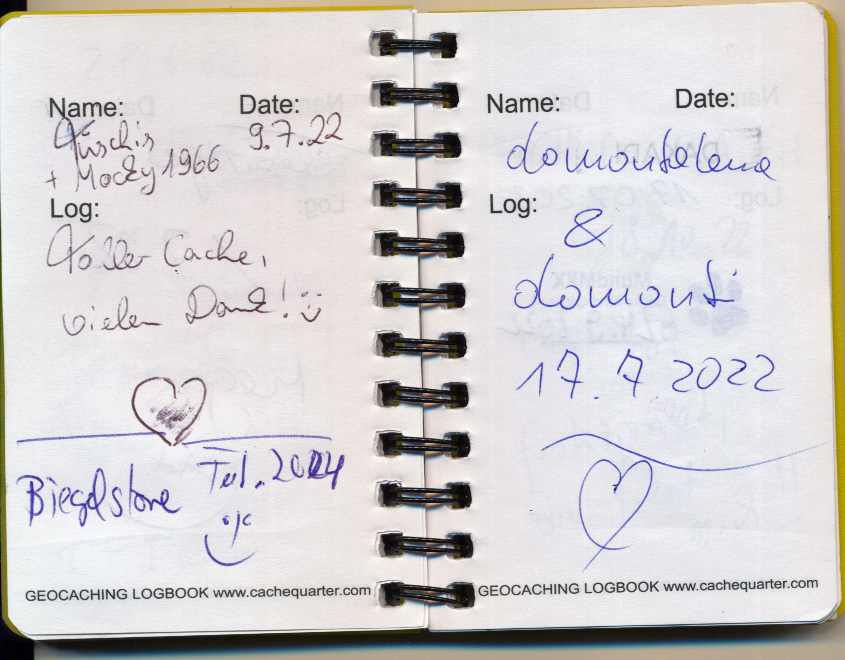 Name: Date:
9.7.22
+ Mocky1966
Log:
Toller Cache,
vielen Dank!
Biegelstone
GEOCACHING LOGBOOK www.cachequarter.com
Name: Date:
domontelena
Log:
&
domonti
17.7 2022
GEOCACHING LOGBOOK www.cachequarter.com